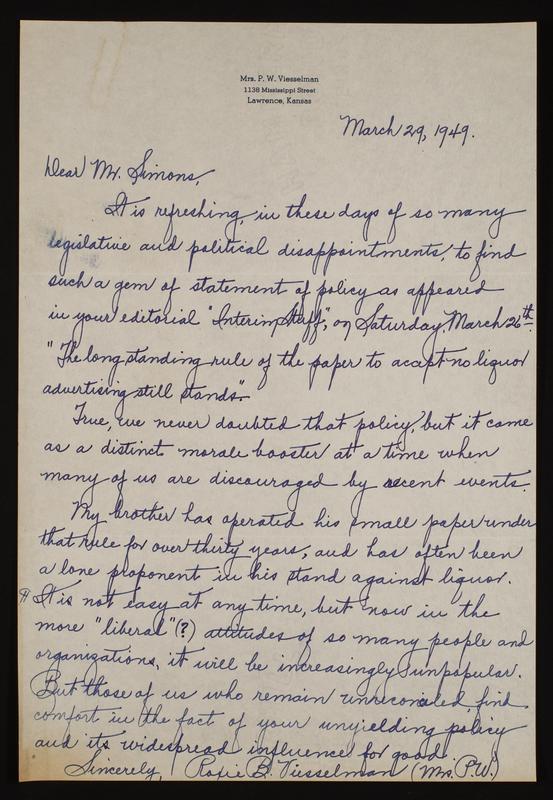 Mrs. P. W. Viesselman
1138 Mississippi Street
Lawrence, Kansas
March 29, 1949.
Dear Mr. Simons,
It is refreshing, in these days of so many
legislative and political disappointments, to find
such a gem of statement of policy as appeared
in your editorial "Interim Stuff", on Saturday, March 26th.
"The long standing rule of the paper to accept no liquor
advertising still stands".
True, we never doubted that policy, but it came
as a distinct morale booster at a time when
many of us are discouraged by recent events.
My brother has operated his small paper under
that rule for over thirty years, and has often been
a lone proponent in his stand against liquor.
¶ It is not easy at any time, but now in the
more "liberal" (?) attitudes of so many people and
organizations, it will be increasingly unpopular.
But those of us who remain unreconciled, find
comfort in the fact of your unyielding policy
and its widespread influence for good.
Sincerely, Roxie B. Viesselman (Mrs. P.W.)